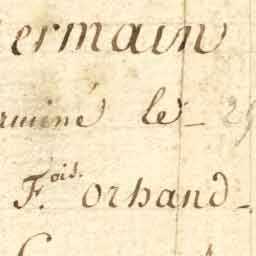 ermain
rminé le - 29
F.ois. orhand -